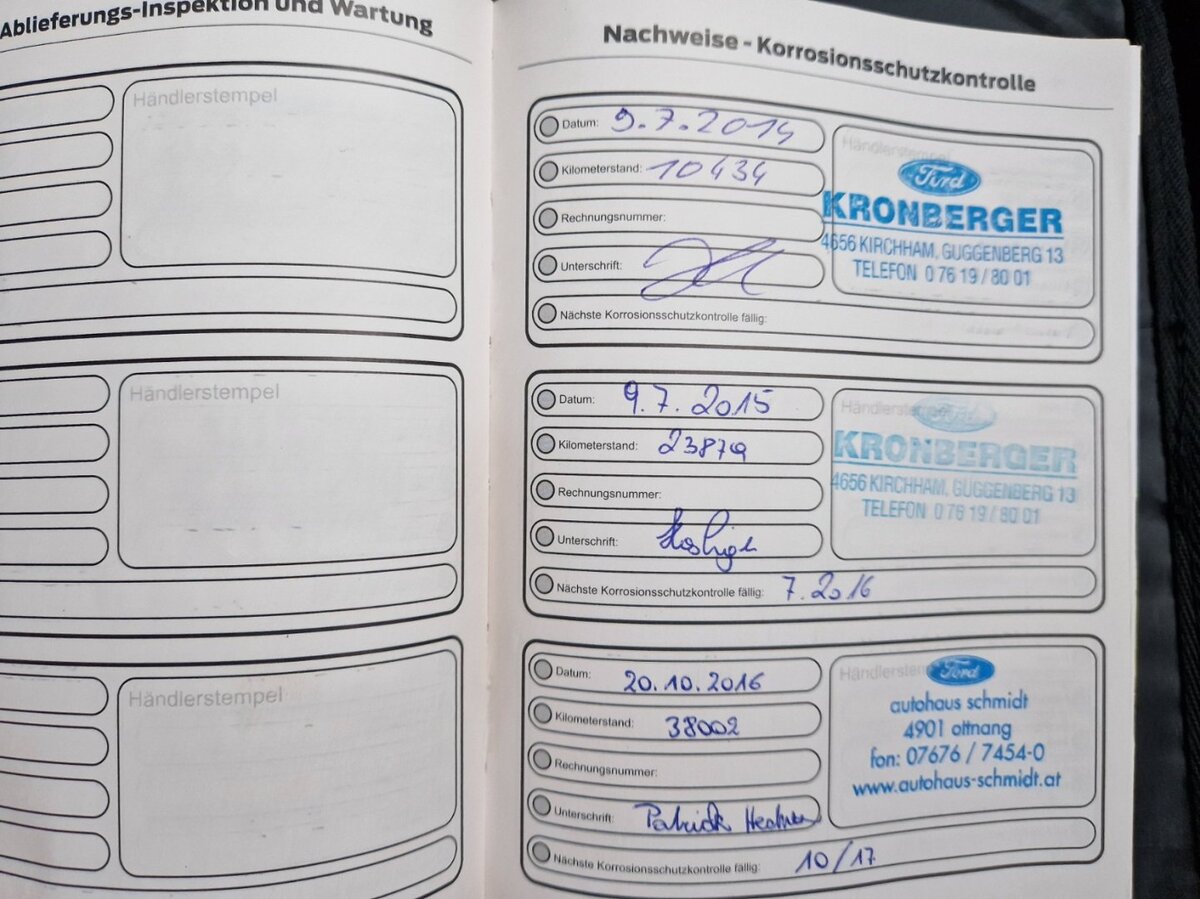 Ablieferungs-Inspektion und Wartung
Händlerstempel
Händlerstempel
Händlerstempel
Nachweise - Korrosionsschutzkontrolle
Datum: 9.7.2014
Kilometerstand: 10434
Rechnungsnummer:
Unterschrift:
Nächste Korrosionsschutzkontrolle fällig:
Händlerstempel
Ford
KRONBERGER
4656 KIRCHHAM, GUGGENBERG 13
TELEFON 0 76 19 / 80 01
Datum: 9.7.2015
Kilometerstand: 23879
Rechnungsnummer:
Unterschrift:
Nächste Korrosionsschutzkontrolle fällig: 7.2016
Händlerstempel
Ford
KRONBERGER
4656 KIRCHHAM, GUGGENBERG 13
TELEFON 0 76 19 / 80 01
Datum: 20.10.2016
Kilometerstand: 38002
Rechnungsnummer:
Unterschrift: Patrick
Nächste Korrosionsschutzkontrolle fällig: 10/17
Händlerstempel
Ford
autohaus schmidt
4901 ottnang
fon: 07676 / 7454-0
www.autohaus-schmidt.at